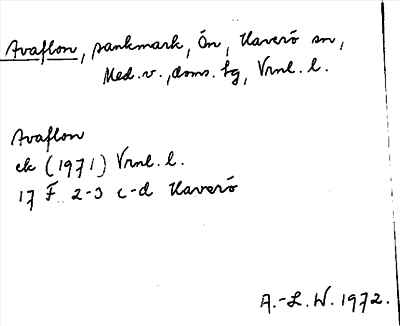 Avaflon, sankmark, Ön, Haverö sn,
Med. v., doms. lg, Vrnl. l.
Avaflon
ek (1971) Vrnl. l.
17 F 2-3 c-d Haverö
A.-L. W. 1972.